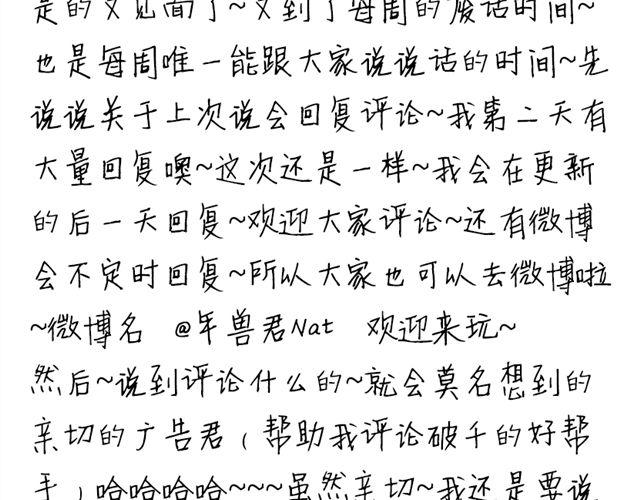 是的又见面了~又到了每周的废话时间~
也是每周唯一能跟大家说说话的时间~先
说说关于上次说会回复评论~我第二天有
大量回复噢~这次还是一样~我会在更新
的后一天回复~欢迎大家评论~还有微博
会不定时回复~所以大家也可以去微博啦
~微博名 @年兽君Nat 欢迎来玩~
然后~说到评论什么的~就会莫名想到的
亲切的广告君(帮助我评论破千的好帮
手)哈哈哈哈~~~虽然亲切~我还是要说